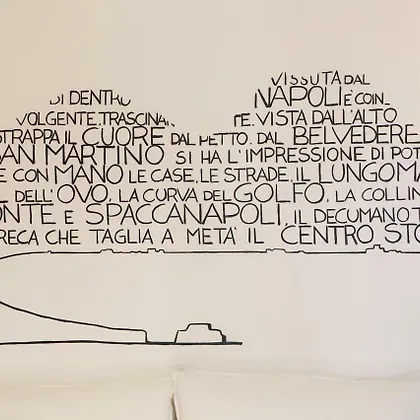 VISSUTA DAL
DI DENTRO NAPOLI È COIN
VOLGENTE, TRASCINAN TE. VISTA DALL'ALTO
STRAPPA IL CUORE DAL PETTO. DAL BELVEDERE
SAN MARTINO SI HA L'IMPRESSIONE DI POT
E CON MANO LE CASE, LE STRADE, IL LUNGOMA
L DELL'OVO, LA CURVA DEL GOLFO, LA COLLIN
ONTE E SPACCANAPOLI, IL DECUMANO
RECA CHE TAGLIA A METÀ IL CENTRO STO